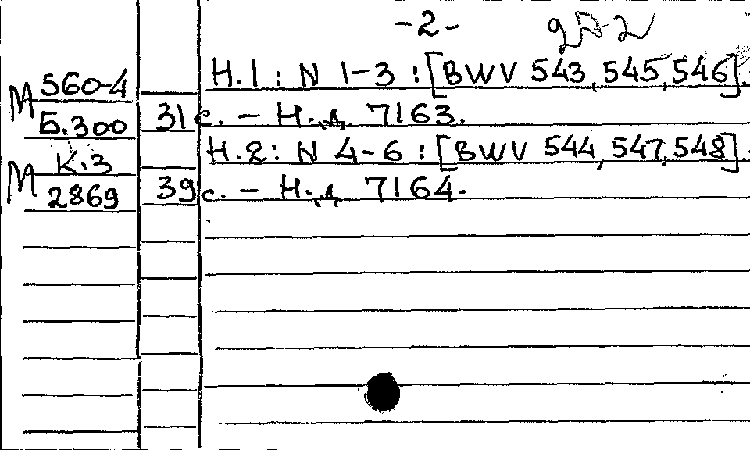 -2-
560-4 H.1: N 1-3: [BWV 543, 545, 546].
М Б.300 31 с. - Н.д. 7163.
К.3 H.2: N 4-6: [BWV 544, 547, 548].
М 2869 39 с. - Н.д. 7164.